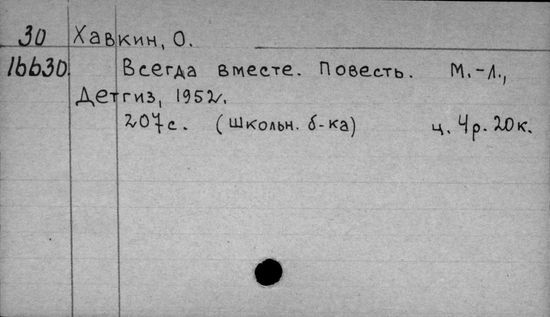 30 Хавкин, О.
16630. Всегда вместе. Повесть. М.-Л.,
Детгиз, 1952.
207с. (школьн. б-ка) ц. 4р. 20к.